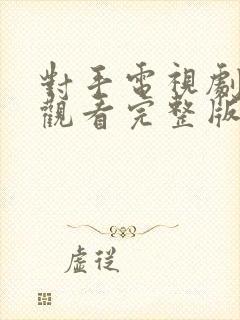 對手電視劇
觀看完整版
虛從